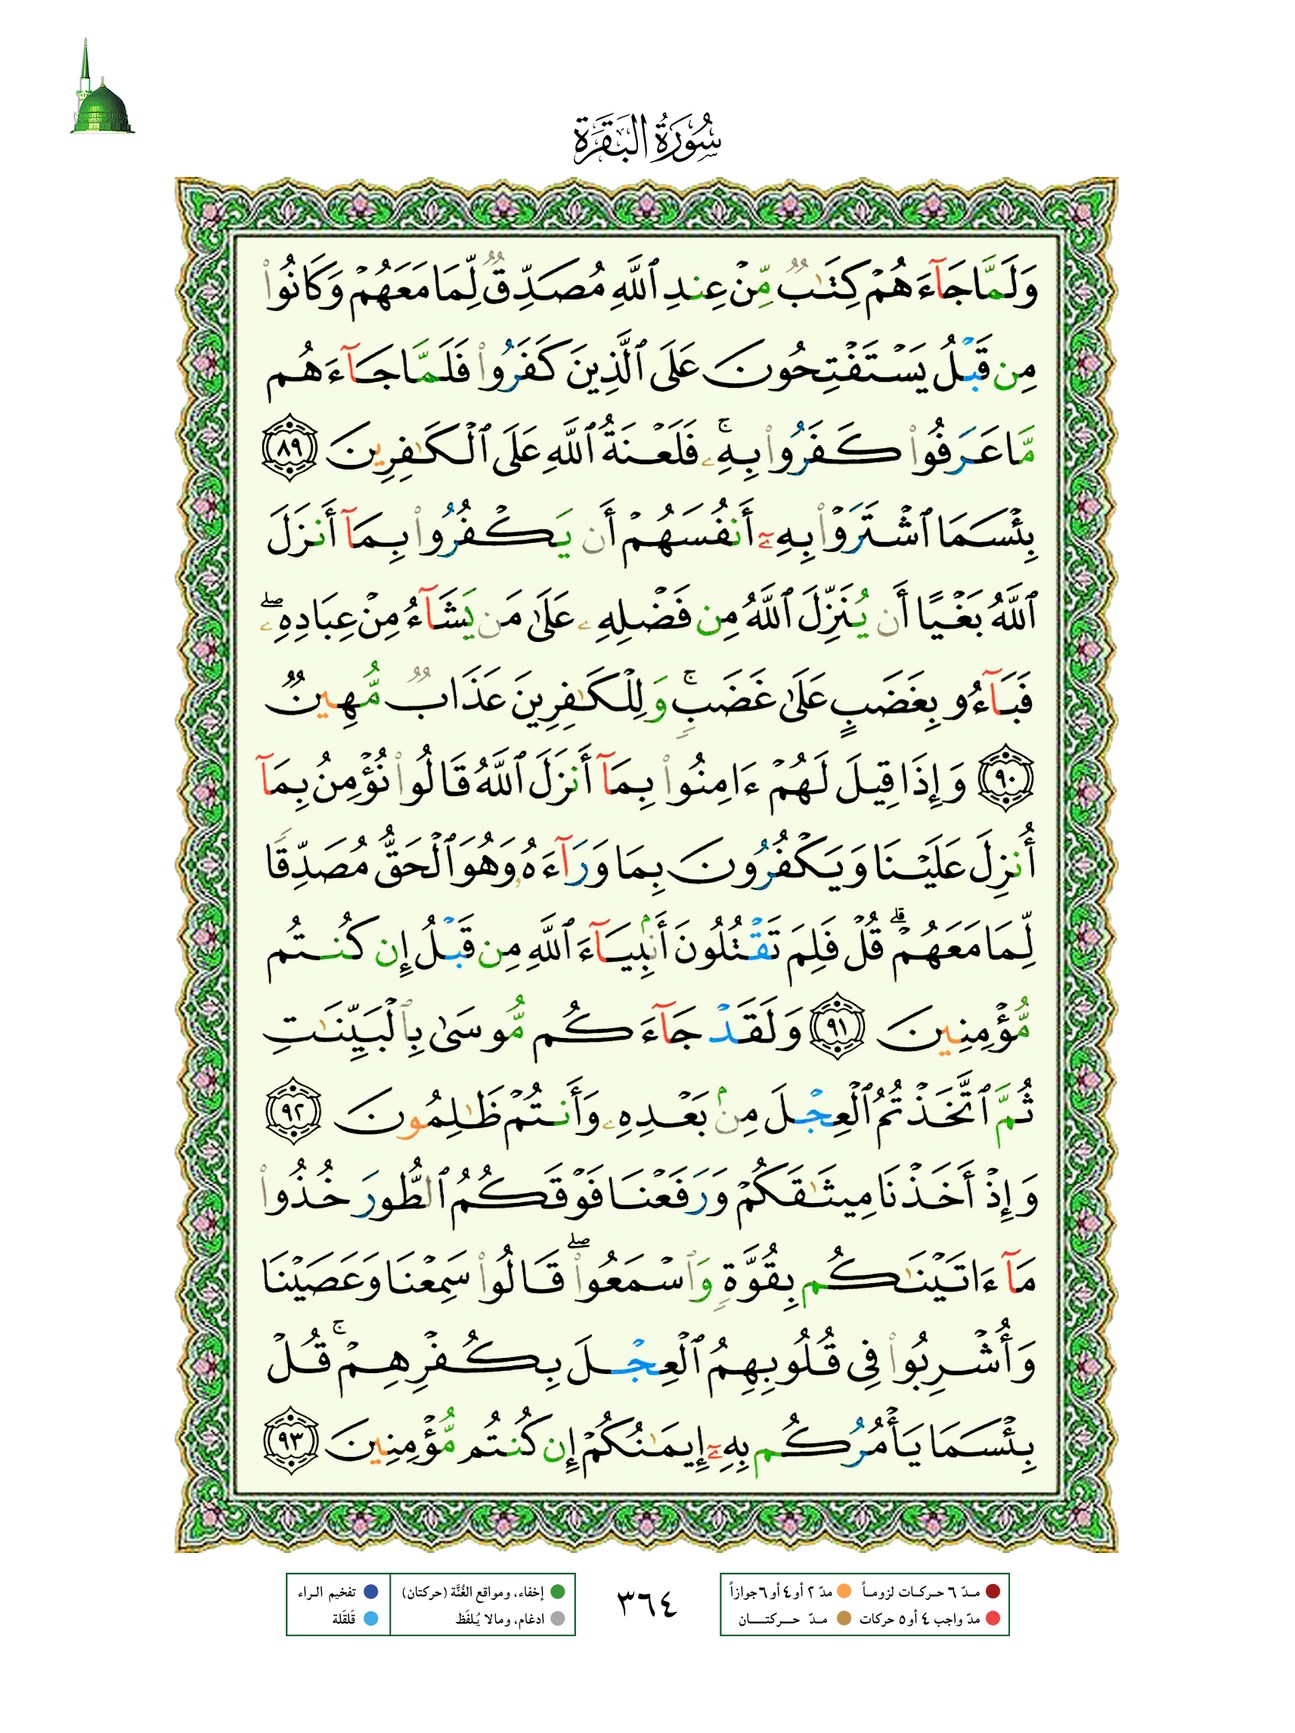 سُورَةُ البَقَرَة
وَلَمَّا جَآءَهُمْ كِتَٰبٌ مِّنْ عِندِ ٱللَّهِ مُصَدِّقٌ لِّمَا مَعَهُمْ وَكَانُوا۟
مِن قَبْلُ يَسْتَفْتِحُونَ عَلَى ٱلَّذِينَ كَفَرُوا۟ فَلَمَّا جَآءَهُم
مَّا عَرَفُوا۟ كَفَرُوا۟ بِهِۦ ۚ فَلَعْنَةُ ٱللَّهِ عَلَى ٱلْكَٰفِرِينَ ٨٩
بِئْسَمَا ٱشْتَرَوْا۟ بِهِۦٓ أَنفُسَهُمْ أَن يَكْفُرُوا۟ بِمَآ أَنزَلَ
ٱللَّهُ بَغْيًا أَن يُنَزِّلَ ٱللَّهُ مِن فَضْلِهِۦ عَلَىٰ مَن يَشَآءُ مِنْ عِبَادِهِۦ ۖ
فَبَآءُو بِغَضَبٍ عَلَىٰ غَضَبٍ ۚ وَلِلْكَٰفِرِينَ عَذَابٌ مُّهِينٌ
٩٠ وَإِذَا قِيلَ لَهُمْ ءَامِنُوا۟ بِمَآ أَنزَلَ ٱللَّهُ قَالُوا۟ نُؤْمِنُ بِمَآ
أُنزِلَ عَلَيْنَا وَيَكْفُرُونَ بِمَا وَرَآءَهُۥ وَهُوَ ٱلْحَقُّ مُصَدِّقًا
لِّمَا مَعَهُمْ ۗ قُلْ فَلِمَ تَقْتُلُونَ أَنۢبِيَآءَ ٱللَّهِ مِن قَبْلُ إِن كُنتُم
مُّؤْمِنِينَ ٩١ وَلَقَدْ جَآءَكُم مُّوسَىٰ بِٱلْبَيِّنَٰتِ
ثُمَّ ٱتَّخَذْتُمُ ٱلْعِجْلَ مِنۢ بَعْدِهِۦ وَأَنتُمْ ظَٰلِمُونَ ٩٢
وَإِذْ أَخَذْنَا مِيثَٰقَكُمْ وَرَفَعْنَا فَوْقَكُمُ ٱلطُّورَ خُذُوا۟
مَآ ءَاتَيْنَٰكُم بِقُوَّةٍ وَٱسْمَعُوا۟ ۖ قَالُوا۟ سَمِعْنَا وَعَصَيْنَا
وَأُشْرِبُوا۟ فِى قُلُوبِهِمُ ٱلْعِجْلَ بِكُفْرِهِمْ ۚ قُلْ
بِئْسَمَا يَأْمُرُكُم بِهِۦٓ إِيمَٰنُكُمْ إِن كُنتُم مُّؤْمِنِينَ ٩٣
مـدّ ٦ حـركـات لزومـاً
مدّ ٢ أو ٤ أو ٦ جوازاً
مدّ واجب ٤ أو ٥ حركات
مـدّ حـــركتـــــان
٣٦٤
إخفاء، ومواقع الغُنَّة (حركتان)
تفخيم الـراء
ادغام، ومالا يُـلفَظ
قلقلة